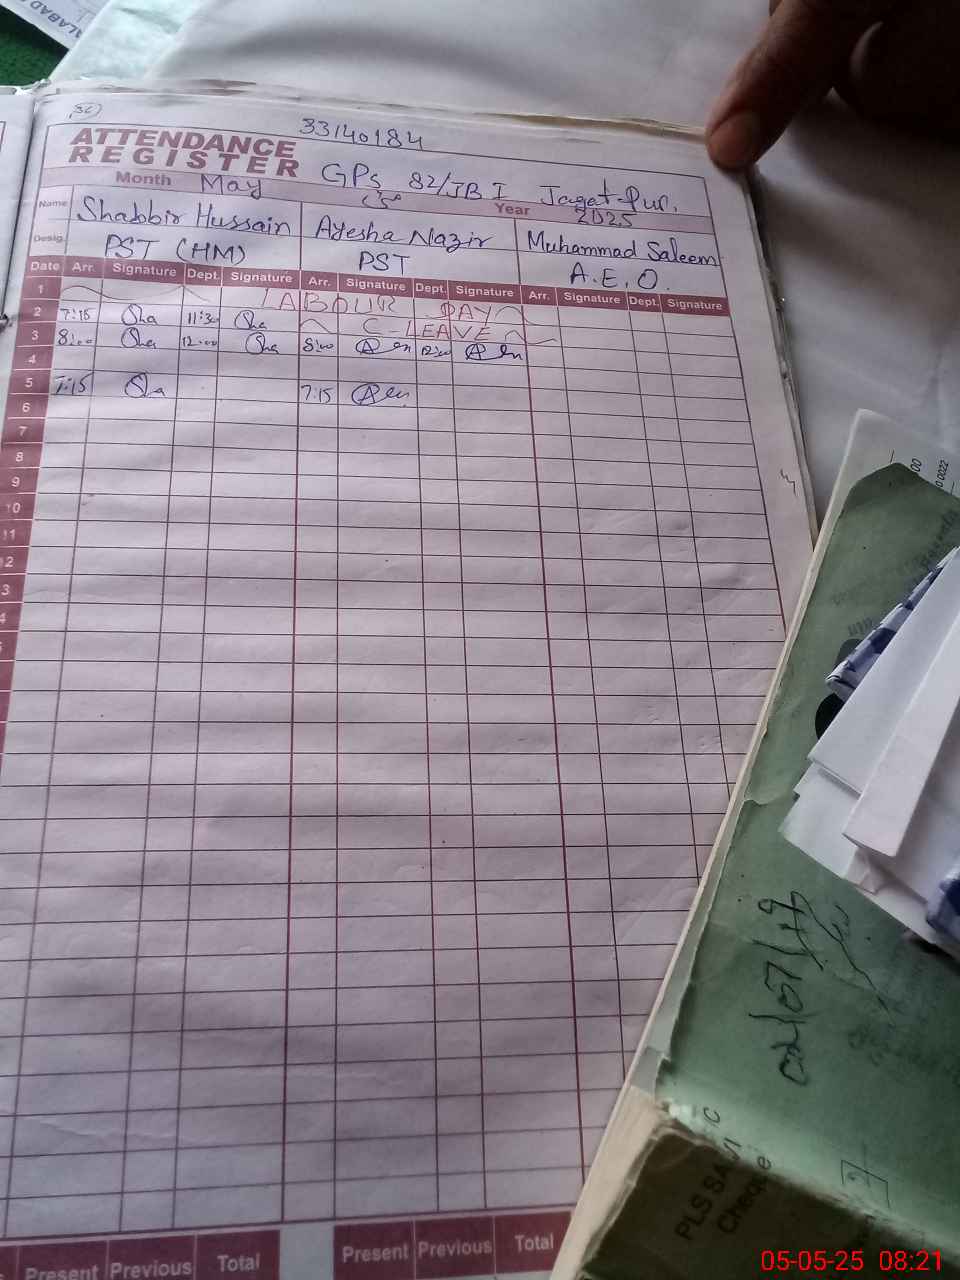 36
33140184
ATTENDANCE
REGISTER
GPS 82/JB I Jagat Pur.
Month May Year 2025
Name Shabbir Hussain Ayesha Nazir Muhammad Saleem
Desig. PST (HM) PST A.E.O.
Date Arr. Signature Dept. Signature Arr. Signature Dept. Signature Arr. Signature Dept. Signature
1 LABOUR DAY
2 7:15 Sha 11:30 Sha C-LEAVE
3 8:00 Sha 12:00 Sha 8:00 12:00
4
5 7:15 Sha 7:15
6
7
8
9
10
11
2
3
4
Present Previous Total Present Previous Total
PLS SA
Cheque
05-05-25 08:21